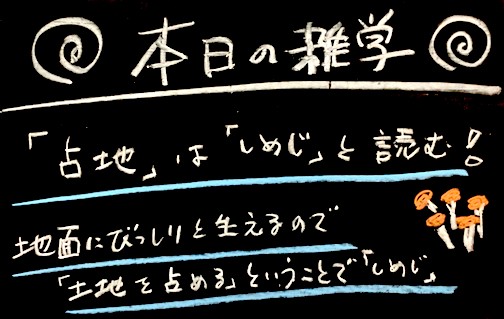 本日の雑学
「占地」は「しめじ」と読む!
地面にびっしりと生えるので
「土地を占める」ということで「しめじ」